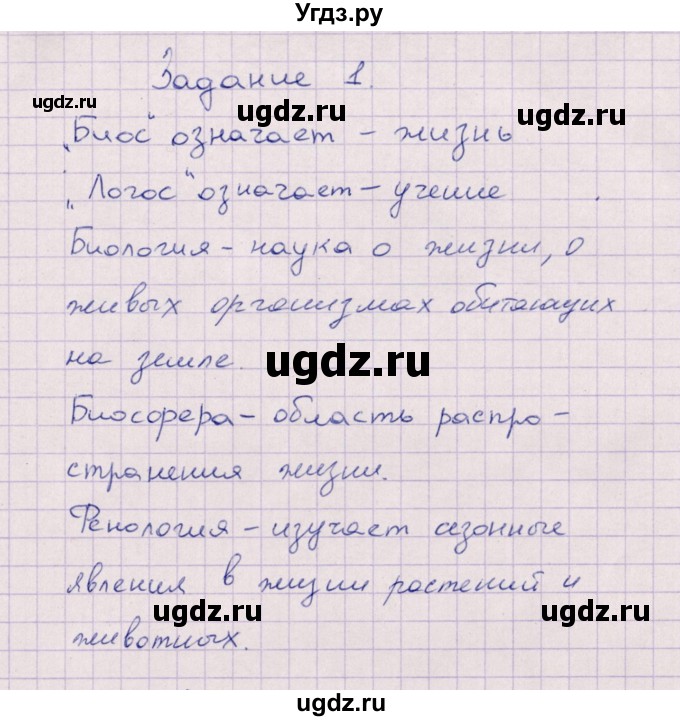 Угдз.ру
Задание 1.
ugdz.ru ugdz.ru ugdz.ru
„Биос“ означает – жизнь
„Логос“ означает – учение
Биология – наука о жизни, о
живых организмах обитающих
на земле.
ugdz.ru
Биосфера – область распро-
странения жизни.
Фенология – изучает сезонные
явления в жизни растений и
ugdz.ru ugdz.ru
животных.
ugdz.ru